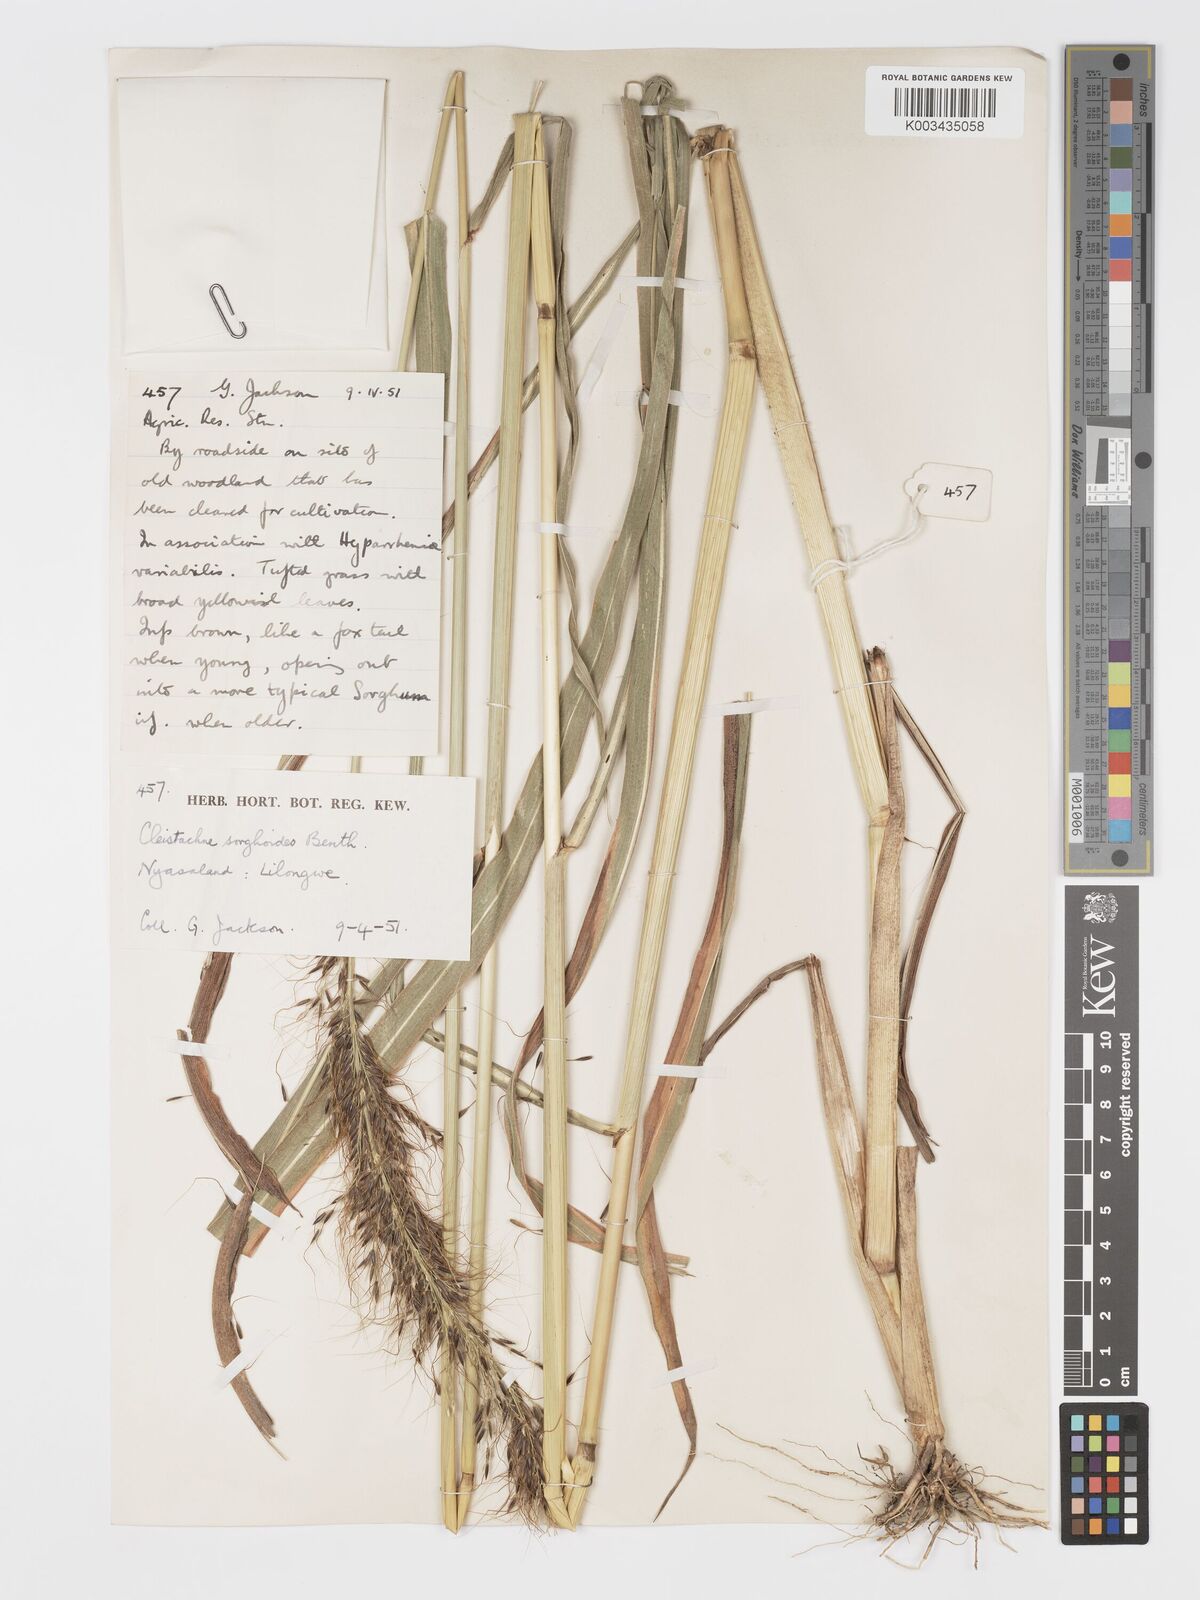 ROYAL BOTANIC GARDENS KEW
K003435058
457 G. Jackson 9.IV.51
Agric. Res. Stn.
By roadside on site of
old woodland that has
been cleared for cultivation.
In association with Hyparrhenia
variabilis. Tufted grass with
broad yellowish leaves.
Infl brown, like a fox tail
when young, opening out
into a more typical Sorghum
inf. when older.
457.
HERB. HORT. BOT. REG. KEW.
Cleistachne sorghoides Benth.
Nyasaland: Lilongwe.
Coll. G. Jackson. 9-4-51.
457
inches
centimeters
Density
Don Williams
M001006
Kew
Royal Botanic Gardens
copyright reserved
0 1 2 3 4 5 6 7 8 9 10
cm